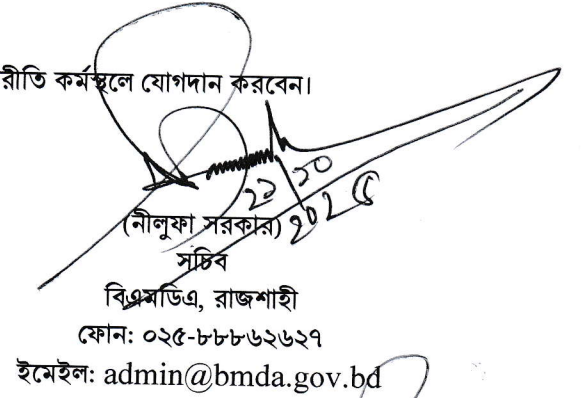 রীতি কর্মস্থলে যোগদান করবেন।
(নীলুফা সরকার)
সচিব
বিএমডিএ, রাজশাহী
ফোন: ০২৫-৮৮৮৬২৬২৭
ইমেইল: admin@bmda.gov.bd